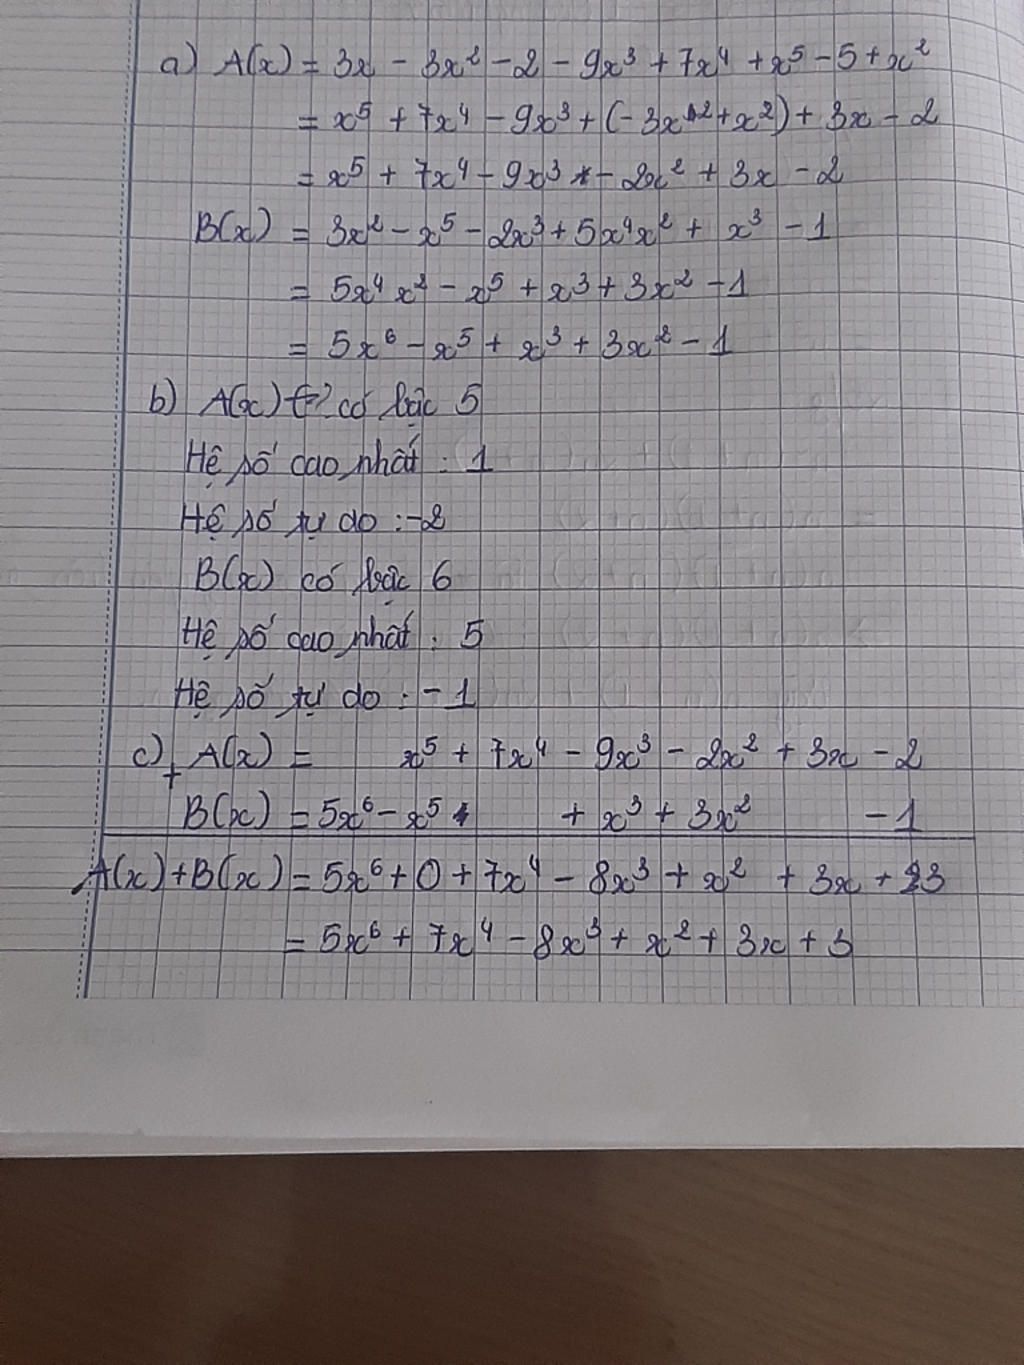 a) A(x) = 3x - 3x² - 2 - 9x³ + 7x⁴ + x⁵ - 5 + x²
= x⁵ + 7x⁴ - 9x³ + (-3x² + x²) + 3x - 2
= x⁵ + 7x⁴ - 9x³ - 2x² + 3x - 2
B(x) = 3x² - x⁵ - 2x³ + 5x⁴x² + x³ - 1
= 5x⁴x² - x⁵ + x³ + 3x² - 1
= 5x⁶ - x⁵ + x³ + 3x² - 1
b) A(x) có bậc 5
Hệ số cao nhất : 1
Hệ số tự do : -2
B(x) có bậc 6
Hệ số cao nhất : 5
Hệ số tự do : -1
c) + A(x) = x⁵ + 7x⁴ - 9x³ - 2x² + 3x - 2
B(x) = 5x⁶ - x⁵ + x³ + 3x² - 1
A(x) + B(x) = 5x⁶ + 0 + 7x⁴ - 8x³ + x² + 3x + 3
= 5x⁶ + 7x⁴ - 8x³ + x² + 3x + 3